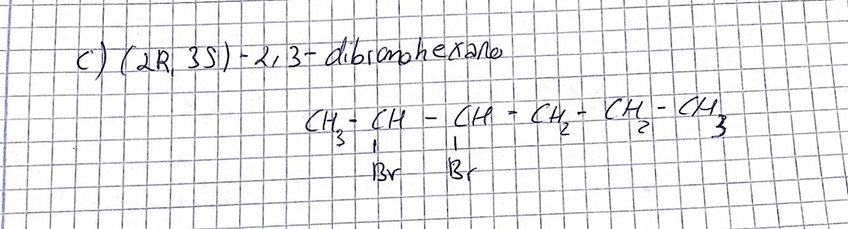 c) (2R, 3S) - 2,3 - dibromohexane
CH3 - CH - CH - CH2 - CH2 - CH3
Br Br